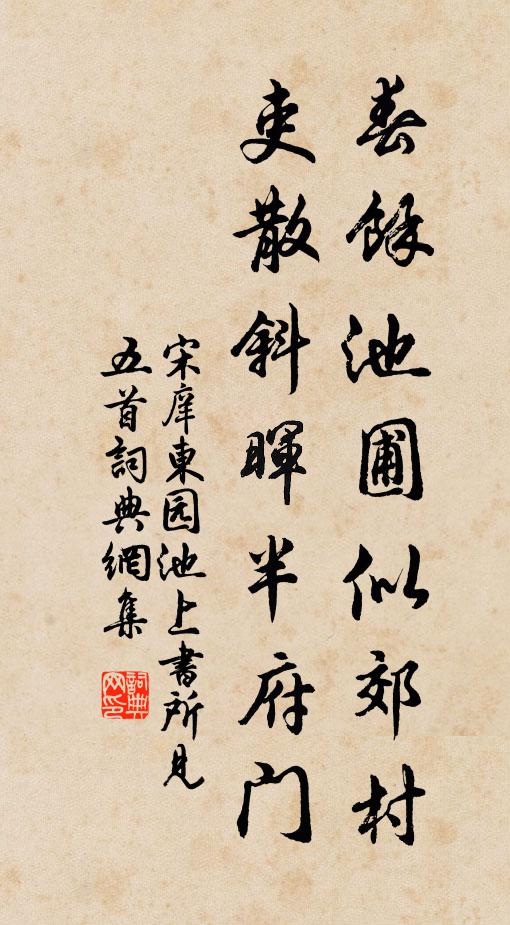 春餘池圃似郊村
吏散斜暉半府門
宋庠東园池上書所見
五首詞典網集
詞典網印